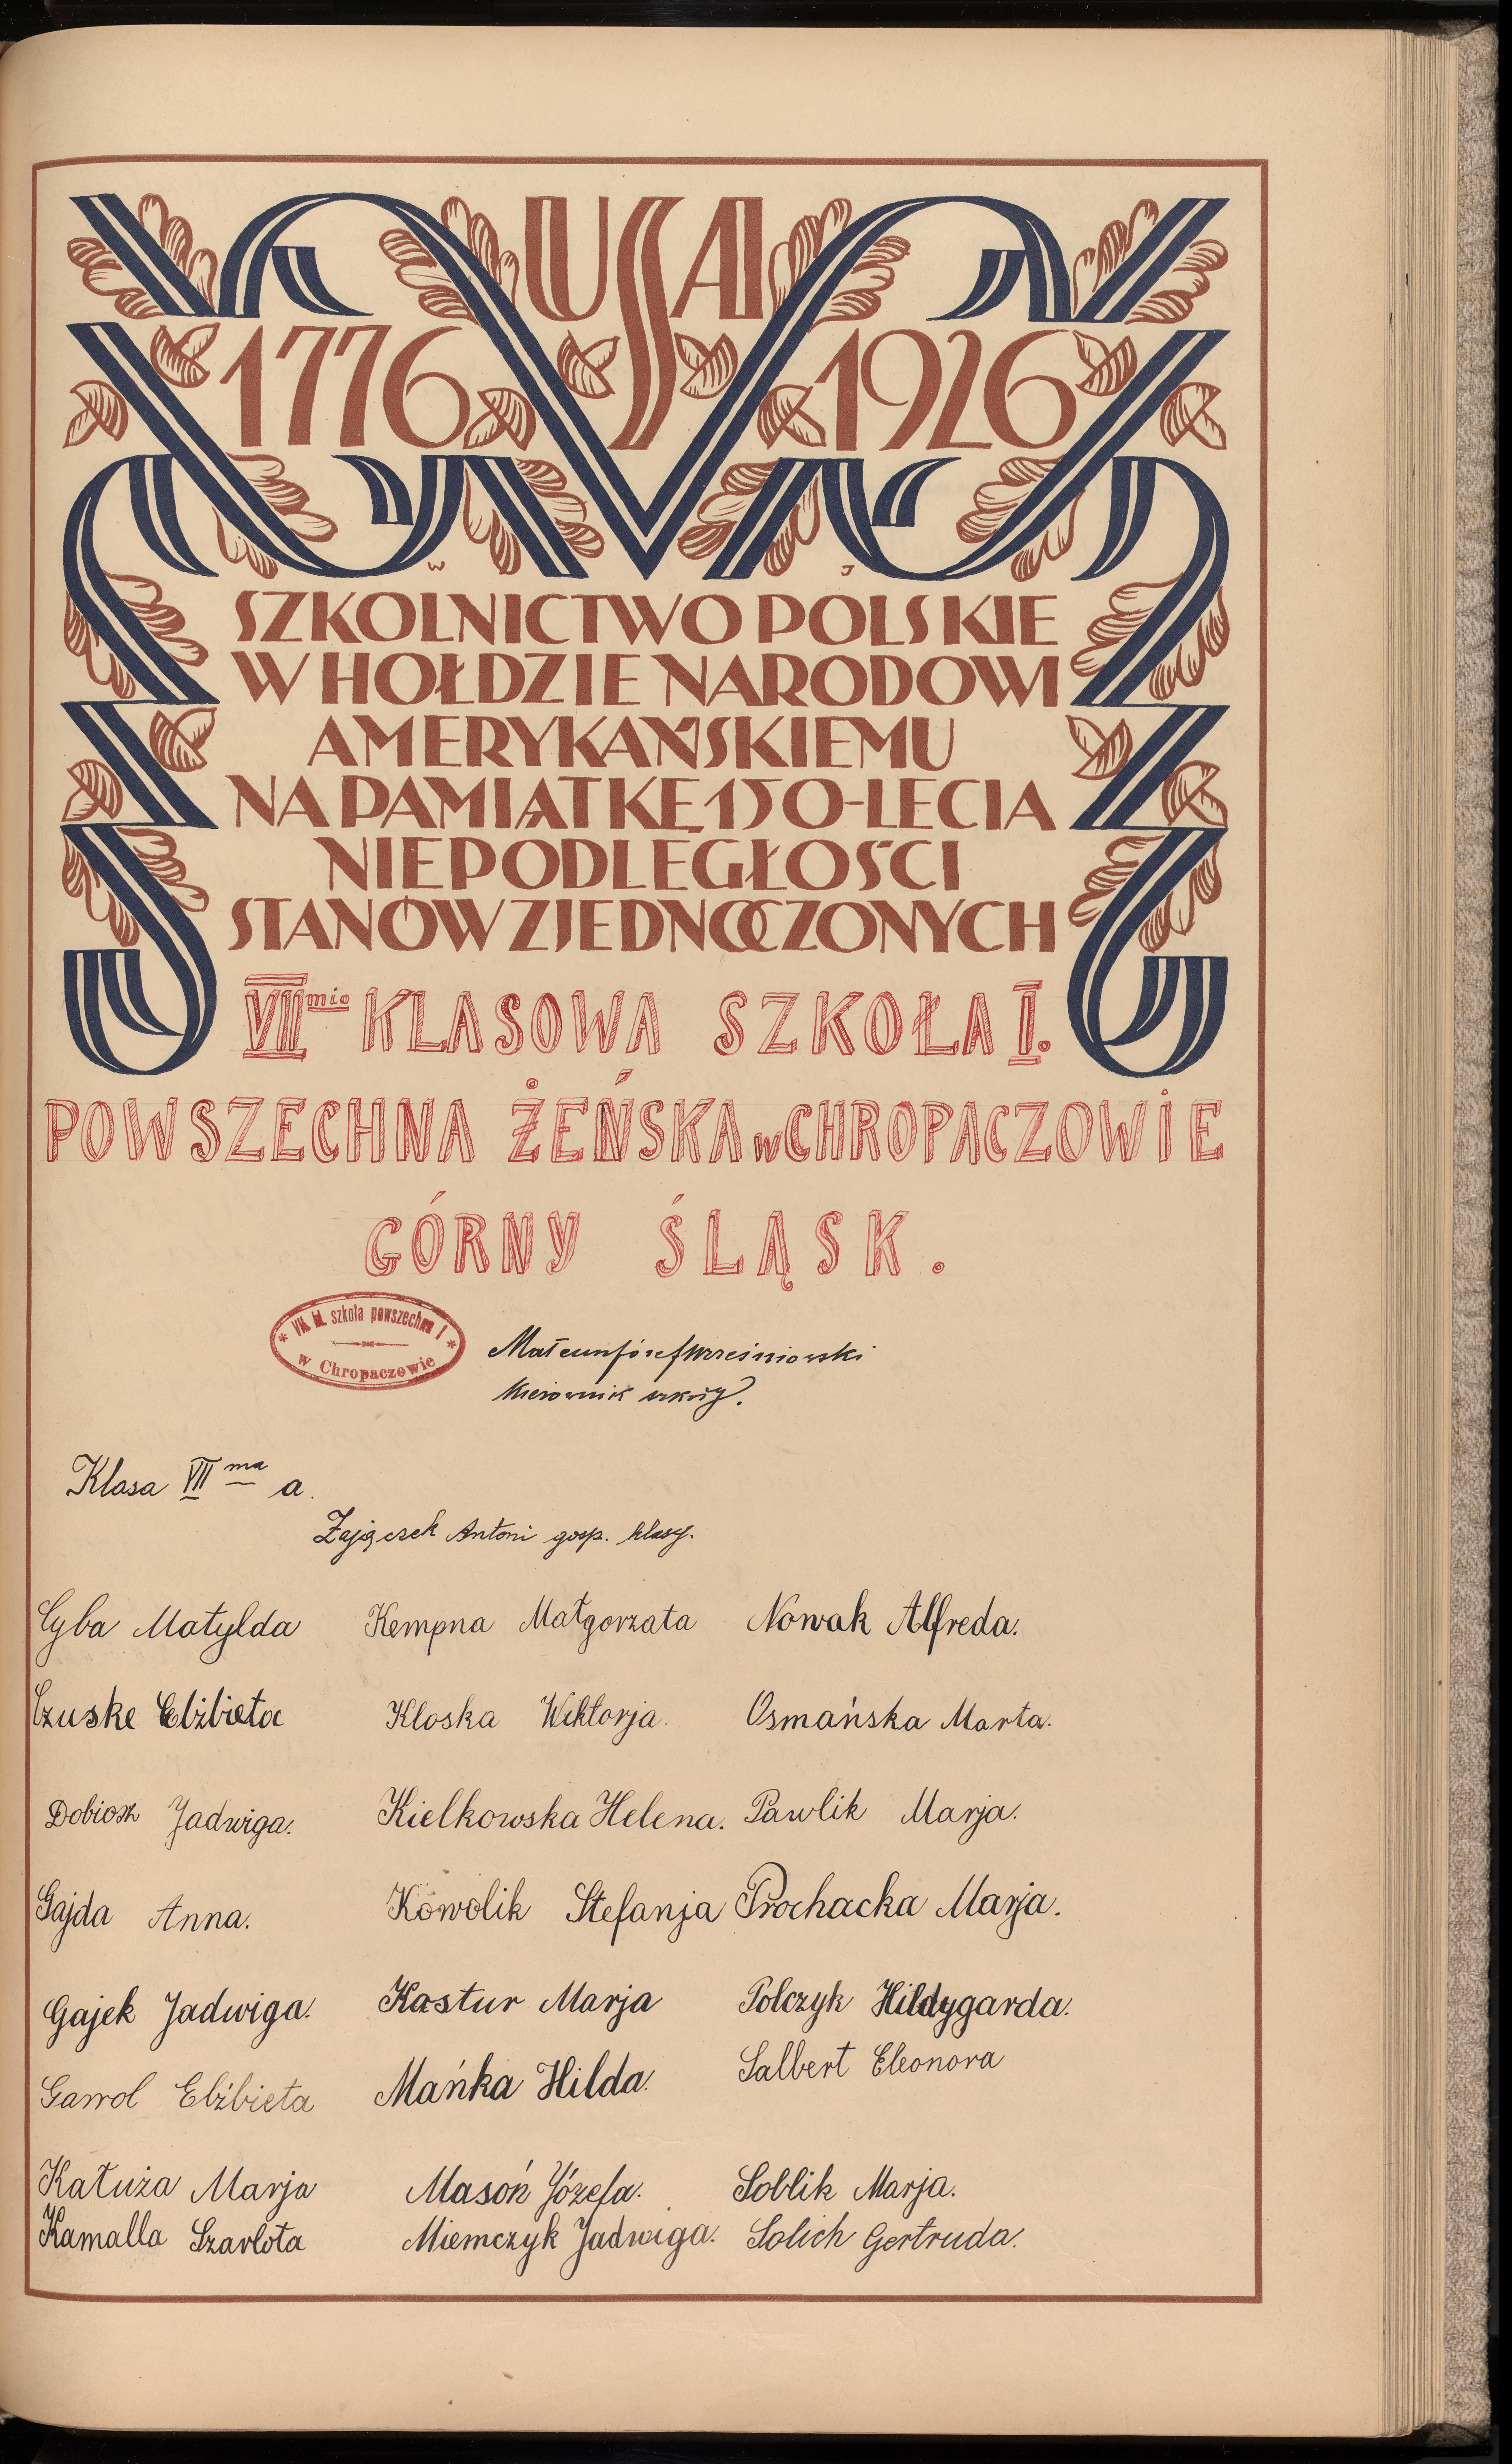 USA
1776 1926
W J
SZKOLNICTWO POLSKIE
W HOŁDZIE NARODOWI
AMERYKAŃSKIEMU
NA PAMIĄTKĘ 150-LECIA
NIEPODLEGŁOŚCI
STANÓW ZJEDNOCZONYCH
VII mio KLASOWA SZKOŁA I.
POWSZECHNA ŻEŃSKA w CHROPACZOWIE
GÓRNY ŚLĄSK.
* VII kl. szkoła powszechna I *
w Chropaczowie
Józef Wrześniowski
kierownik szkoły.
Klasa VII ma a.
Zajączek Antoni gosp. klasy.
Cyba Matylda Kempna Małgorzata Nowak Alfreda.
Czuske Elżbieta Kloska Wiktorja. Osmańska Marta.
Dobiosz Jadwiga. Kielkowska Helena. Pawlik Marja.
Gajda Anna. Kowolik Stefanja Prochacka Marja.
Gajek Jadwiga. Kastur Marja Polczyk Hildygarda.
Gawol Elżbieta Mańka Hilda. Salbert Eleonora
Kałuża Marja Masoń Józefa. Soblik Marja.
Kamalla Szarlota Miemczyk Jadwiga. Solich Gertruda.